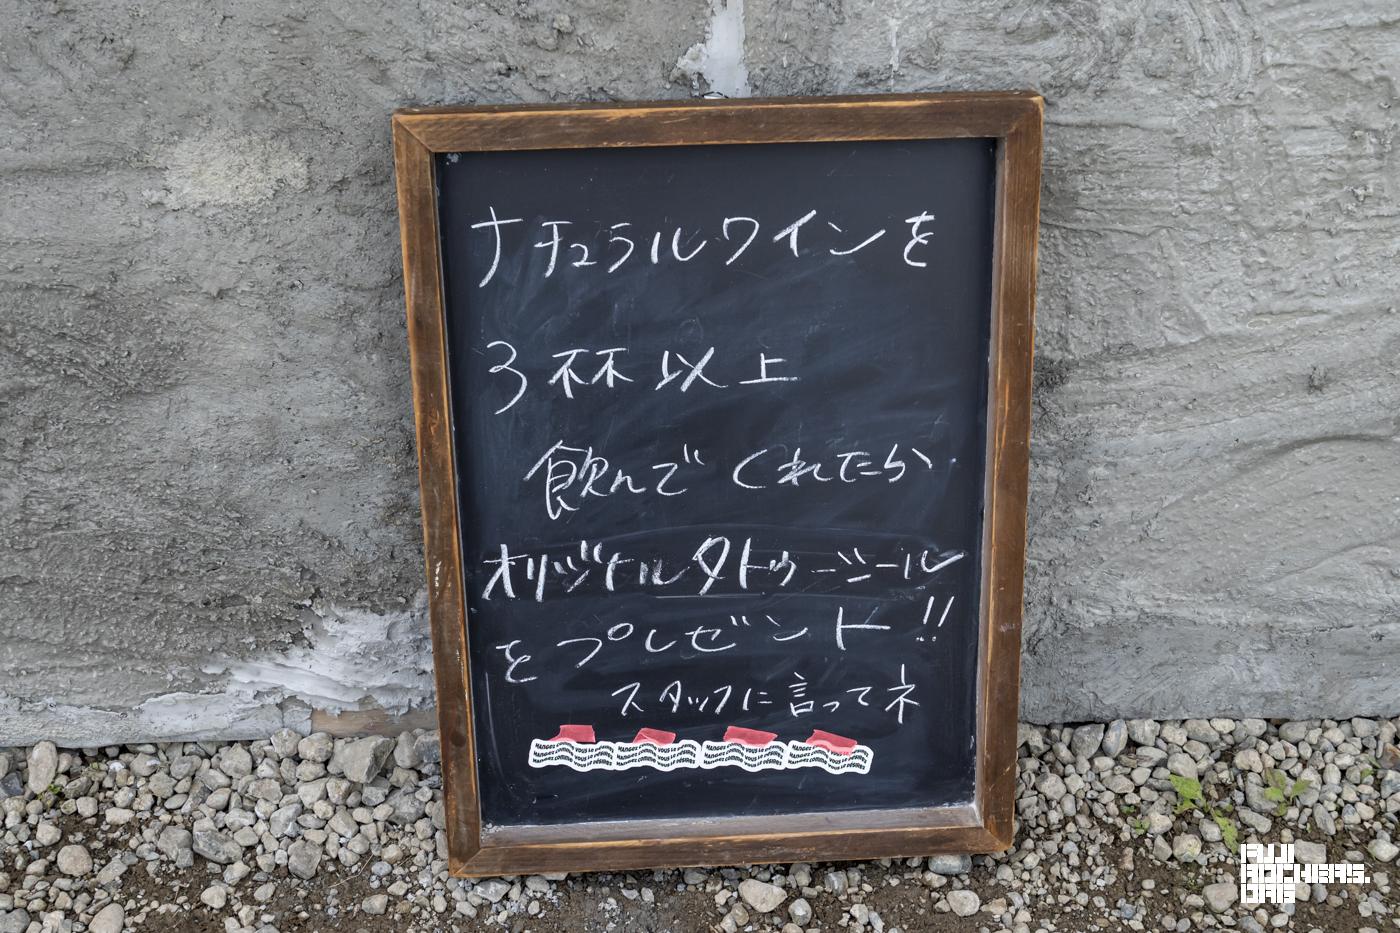 ナチュラルワインを
3杯以上
飲んでくれたら
オリジナルタトゥーシール
をプレゼント!!
スタッフに言ってネ
MANGEZ COMME VOUS LE DÉSIREZ
MANGEZ COMME VOUS LE DÉSIREZ
MANGEZ COMME VOUS LE DÉSIREZ
FUJI
ROCKERS.
ORG